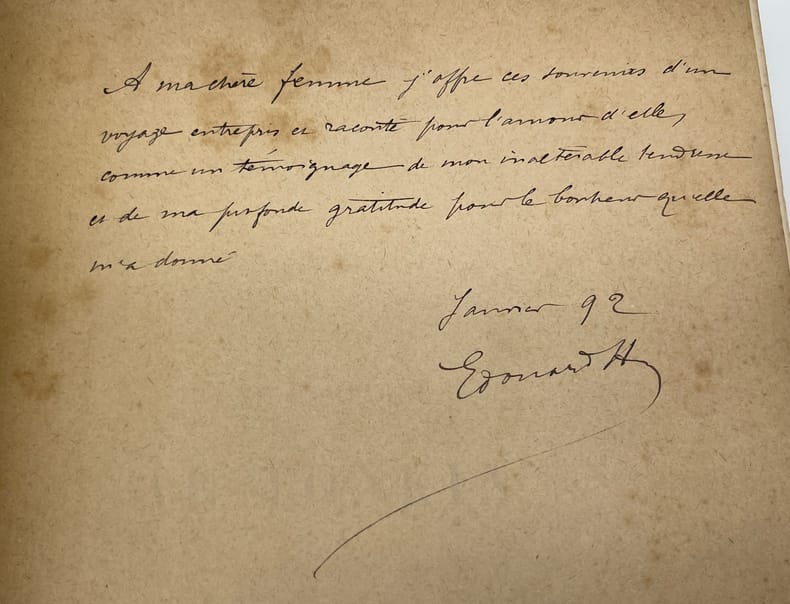 A ma chère femme j'offre ces souvenirs d'un
voyage entrepris et raconté pour l'amour d'elle,
comme un témoignage de mon inaltérable tendresse
et de ma profonde gratitude pour le bonheur qu'elle
m'a donné
Janvier 92
Edouard H